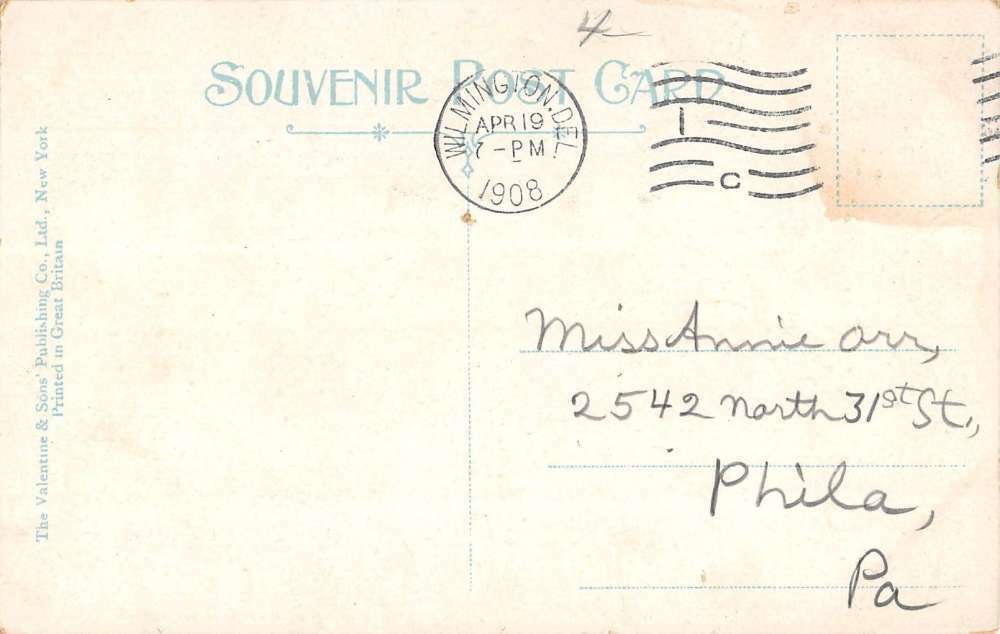 4
SOUVENIR POST CARD
WILMINGTON, DEL.
APR 19
7-PM
1908
1
C
The Valentine & Sons' Publishing Co., Ltd., New York
Printed in Great Britain
Miss Annie Orr,
2542 North 31st St.,
Phila,
Pa